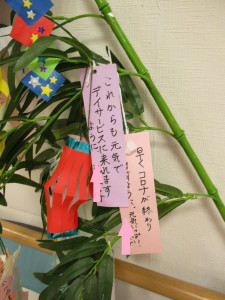 これからも元気で
デイサービスに来れます
ように
早くコロナが終わり
ますように